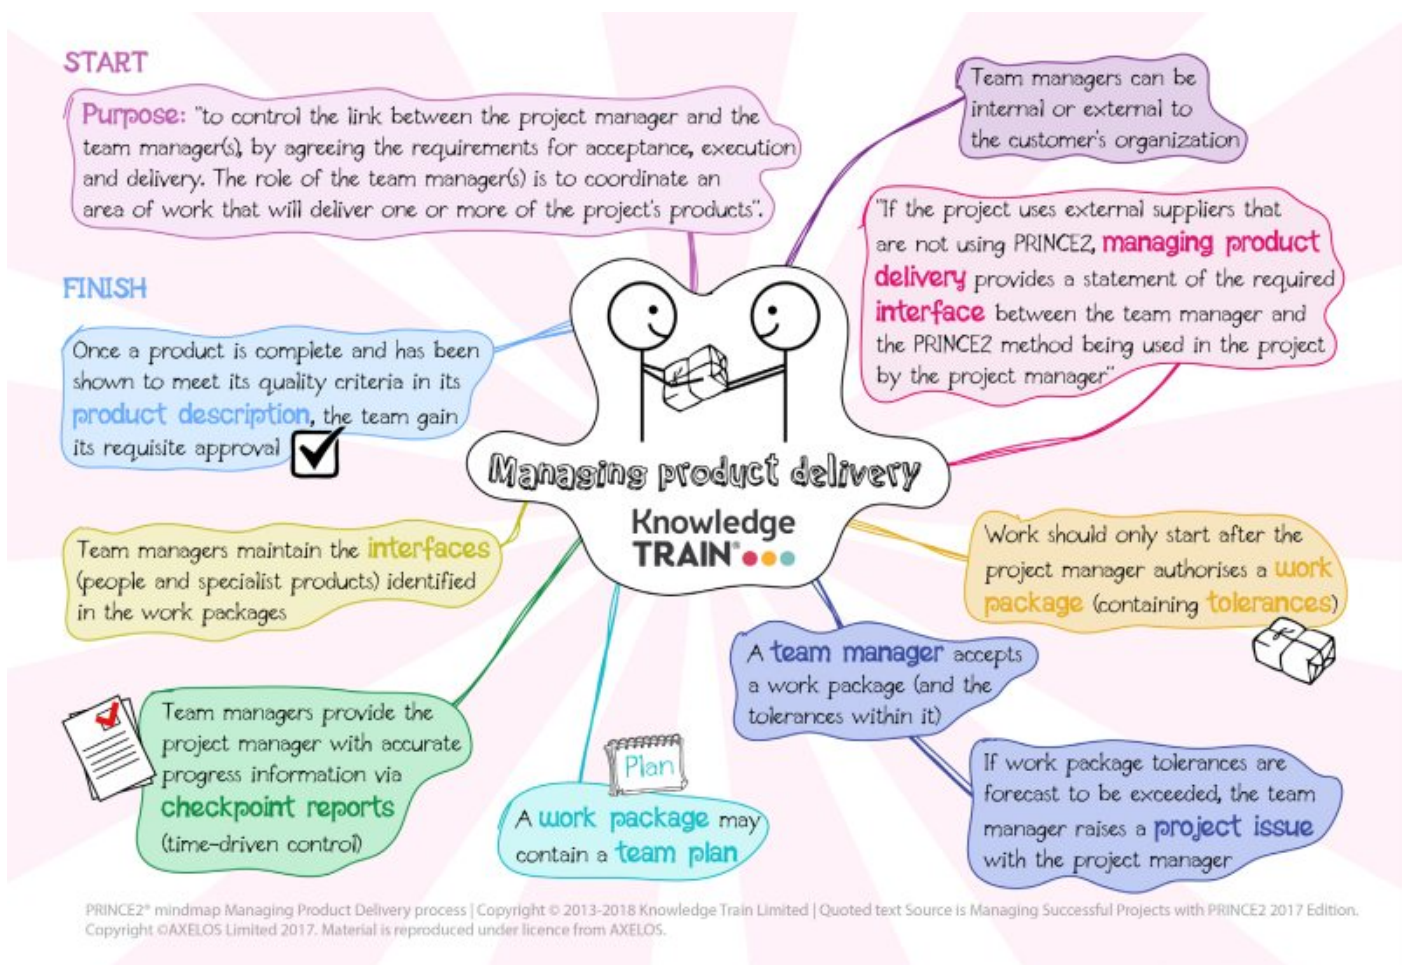 START
Purpose: "to control the link between the project manager and the
team manager(s), by agreeing the requirements for acceptance, execution
and delivery. The role of the team manager(s) is to coordinate an
area of work that will deliver one or more of the project's products".
Team managers can be
internal or external to
the customer's organization
"If the project uses external suppliers that
are not using PRINCE2, managing product
delivery provides a statement of the required
interface between the team manager and
the PRINCE2 method being used in the project
by the project manager"
Work should only start after the
project manager authorises a work
package (containing tolerances)
A team manager accepts
a work package (and the
tolerances within it)
If work package tolerances are
forecast to be exceeded, the team
manager raises a project issue
with the project manager
Plan
A work package may
contain a team plan
Team managers provide the
project manager with accurate
progress information via
checkpoint reports
(time-driven control)
Team managers maintain the interfaces
(people and specialist products) identified
in the work packages
FINISH
Once a product is complete and has been
shown to meet its quality criteria in its
product description, the team gain
its requisite approval
Managing product delivery
Knowledge
TRAIN®
PRINCE2® mindmap Managing Product Delivery process | Copyright © 2013-2018 Knowledge Train Limited | Quoted text Source is Managing Successful Projects with PRINCE2 2017 Edition.
Copyright ©AXELOS Limited 2017. Material is reproduced under licence from AXELOS.